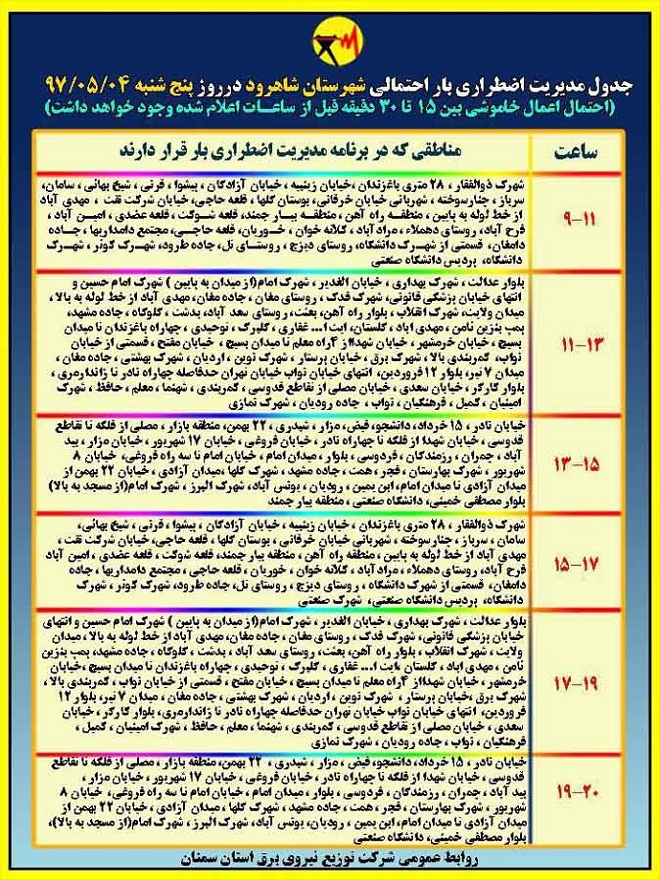 جدول مدیریت اضطراری بار احتمالی شهرستان شاهرود درروز پنج شنبه ۹۷/۰۵/۰۴
(احتمال اعمال خاموشی بین ۱۵ تا ۳۰ دقیقه قبل از ساعات اعلام شده وجود خواهد داشت)
ساعت
مناطقی که در برنامه مدیریت اضطراری بار قرار دارند
۹-۱۱
شهرک ذوالفقار ، ۲۸ متری باغزندان ،خیابان زینبیه ، خیابان آزادگان ، پیشوا ، قرنی ، شیخ بهائی ، سامان،
سرباز ، چنارسوخته ، شهربانی خیابان خرقانی،بوستان گلها ، قلعه حاجی، خیابان شرکت نفت ، مهدی آباد
از خط لوله به پایین ، منطقه راه آهن ، منطقه بیارجمند، قلعه شوکت ، قلعه عضدی ، امین آباد ،
فرح آباد، روستای دهملاء ، مراد آباد ، کلاته خوان ، خوریان ، قلعه حاجی، مجتمع دامداریها ، جاده
دامغان، قسمتی از شهرک دانشگاه، روستای دیزج ، روستای تل، جاده طرود، شهرک کوثر ، شهرک
دانشگاه، پردیس دانشگاه صنعتی
۱۱-۱۳
بلوار عدالت ، شهرک بهداری ، خیابان الغدیر ، شهرک امام(از میدان به پایین ) شهرک امام حسین و
انتهای خیابان پزشکی قانونی، شهرک فدک ، روستای مغان ، جاده مغان،مهدی آباد از خط لوله به بالا،
میدان ولایت، شهرک انقلاب ، بلوار راه آهن، بعثت، روستای سعد آباد، بدشت ، گلوگاه ، جاده مشهد،
پمپ بنزین ثامن، مهدی اباد ، گلستان، ایت ا... غفاری ، گلبرگ ، توحیدی ، چهاراه باغزندان تا میدان
بسیج ، خیابان خرمشهر ، خیابان شهدااز ۴راه معلم تا میدان بسیج ، خیابان مفتح ، قسمتی از خیابان
نواب، کمربندی بالا، شهرک برق ، خیابان پرستار ، شهرک نوین ، اردیان ، شهرک بهشتی ، جاده مغان ،
میدان ۷ تیر، بلوار ۱۲ فروردین، انتهای خیابان نواب خیابان تهران حدفاصله چهاراه نادر تا ژاندارمری،
بلوار کارگر ، خیابان سعدی ، خیابان مصلی از تقاطع قدوسی ، کمربندی ، شهنما ، معلم ، حافظ ، شهرک
امینیان ، کمیل ، فرهنگیان ، نواب ، جاده رودیان ، شهرک نمازی
۱۳-۱۵
خیابان نادر ، ۱۵ خرداد، دانشجو، فیض، مزار ، شیدری ، ۲۲ بهمن، منطقه بازار ، مصلی از فلکه تا تقاطع
قدوسی ، خیابان شهدا از فلکه تا چهاراه نادر ، خیابان فروغی ، خیابان ۱۷ شهریور ، خیابان مزار ، بید
آباد ، چمران ، رزمندگان ، فردوسی ، بلوار ، میدان امام ، خیابان امام تا سه راه فروغی، خیابان ۸
شهریور ، شهرک بهارستان ، فجر ، همت ، جاده مشهد ، شهرک گلها ،میدان آزادی ، خیابان ۲۲ بهمن از
میدان آزادی تا میدان امام، ابن یمین ، رودیان ، یونس آباد، شهرک البرز ، شهرک امام(از مسجد به بالا)
بلوار مصطفی خمینی، دانشگاه صنعتی ، منطقه بیارجمند
۱۵-۱۷
شهرک ذوالفقار ، ۲۸ متری باغزندان ، خیابان زینبیه ، خیابان آزادگان ، پیشوا ، قرنی ، شیخ بهائی،
سامان، سرباز ، چنارسوخته ، شهربانی خیابان خرقانی ، بوستان گلها ، قلعه حاجی، خیابان شرکت نفت ،
مهدی آباد از خط لوله به پایین ، منطقه راه آهن ، منطقه بیارجمند، قلعه شوکت ، قلعه عضدی ، امین آباد
، فرح آباد، روستای دهملاء ، مرادآباد ، کلاته خوان ، خوریان ، قلعه حاجی ، مجتمع دامداریها ، جاده
دامغان، قسمتی از شهرک دانشگاه ، روستای دیزج ، روستای تل، جاده طرود، شهرک کوثر ، شهرک
دانشگاه، پردیس دانشگاه صنعتی، شهرک صنعتی
۱۷-۱۹
بلوار عدالت ، شهرک بهداری ، خیابان الغدیر ، شهرک امام(از میدان به پایین ) شهرک امام حسین و انتهای
خیابان پزشکی قانونی، شهرک فدک ، روستای مغان ، جاده مغان،مهدی آباد از خط لوله به بالا ، میدان
ولایت ، شهرک انقلاب ، بلوار راه آهن، بعثت، روستای سعد آباد ، بدشت ، گلوگاه ، جاده مشهد، پمپ بنزین
ثامن، مهدی اباد ، گلستان ،ایت ا... غفاری ، گلبرگ ، توحیدی ، چهاراه باغزندان تا میدان بسیج ،خیابان
خرمشهر ، خیابان شهدااز ۴راه معلم تا میدان بسیج ، خیابان مفتح ، قسمتی از خیابان نواب ، کمربندی بالا ،
شهرک برق ،خیابان پرستار ، شهرک نوین ، اردیان ، شهرک بهشتی ، جاده مغان ، میدان ۷ تیر، بلوار ۱۲
فروردین، انتهای خیابان نواب خیابان تهران حدفاصله چهاراه نادر تا ژاندارمری، بلوار کارگر ، خیابان
سعدی ، خیابان مصلی از تقاطع قدوسی ، کمربندی ، شهنما ، معلم ، حافظ ، شهرک امینیان ، کمیل ،
فرهنگیان ، نواب ، جاده رودیان ، شهرک نمازی
۱۹-۲۰
خیابان نادر ، ۱۵ خرداد، دانشجو، فیض، مزار ، شیدری ، ۲۲ بهمن، منطقه بازار ، مصلی از فلکه تا تقاطع
قدوسی ، خیابان شهدا از فلکه تا چهاراه نادر ، خیابان فروغی ، خیابان ۱۷ شهریور ، خیابان مزار ،
بید آباد ، چمران ، رزمندگان ، فردوسی ، بلوار ، میدان امام ، خیابان امام تا سه راه فروغی، خیابان ۸
شهریور ، شهرک بهارستان ، فجر ، همت ، جاده مشهد، شهرک گلها ، میدان آزادی ، خیابان ۲۲ بهمن از
میدان آزادی تا میدان امام، ابن یمین ، رودیان، یونس آباد، شهرک البرز ، شهرک امام(از مسجد به بالا)،
بلوار مصطفی خمینی، دانشگاه صنعتی
روابط عمومی شرکت توزیع نیروی برق استان سمنان